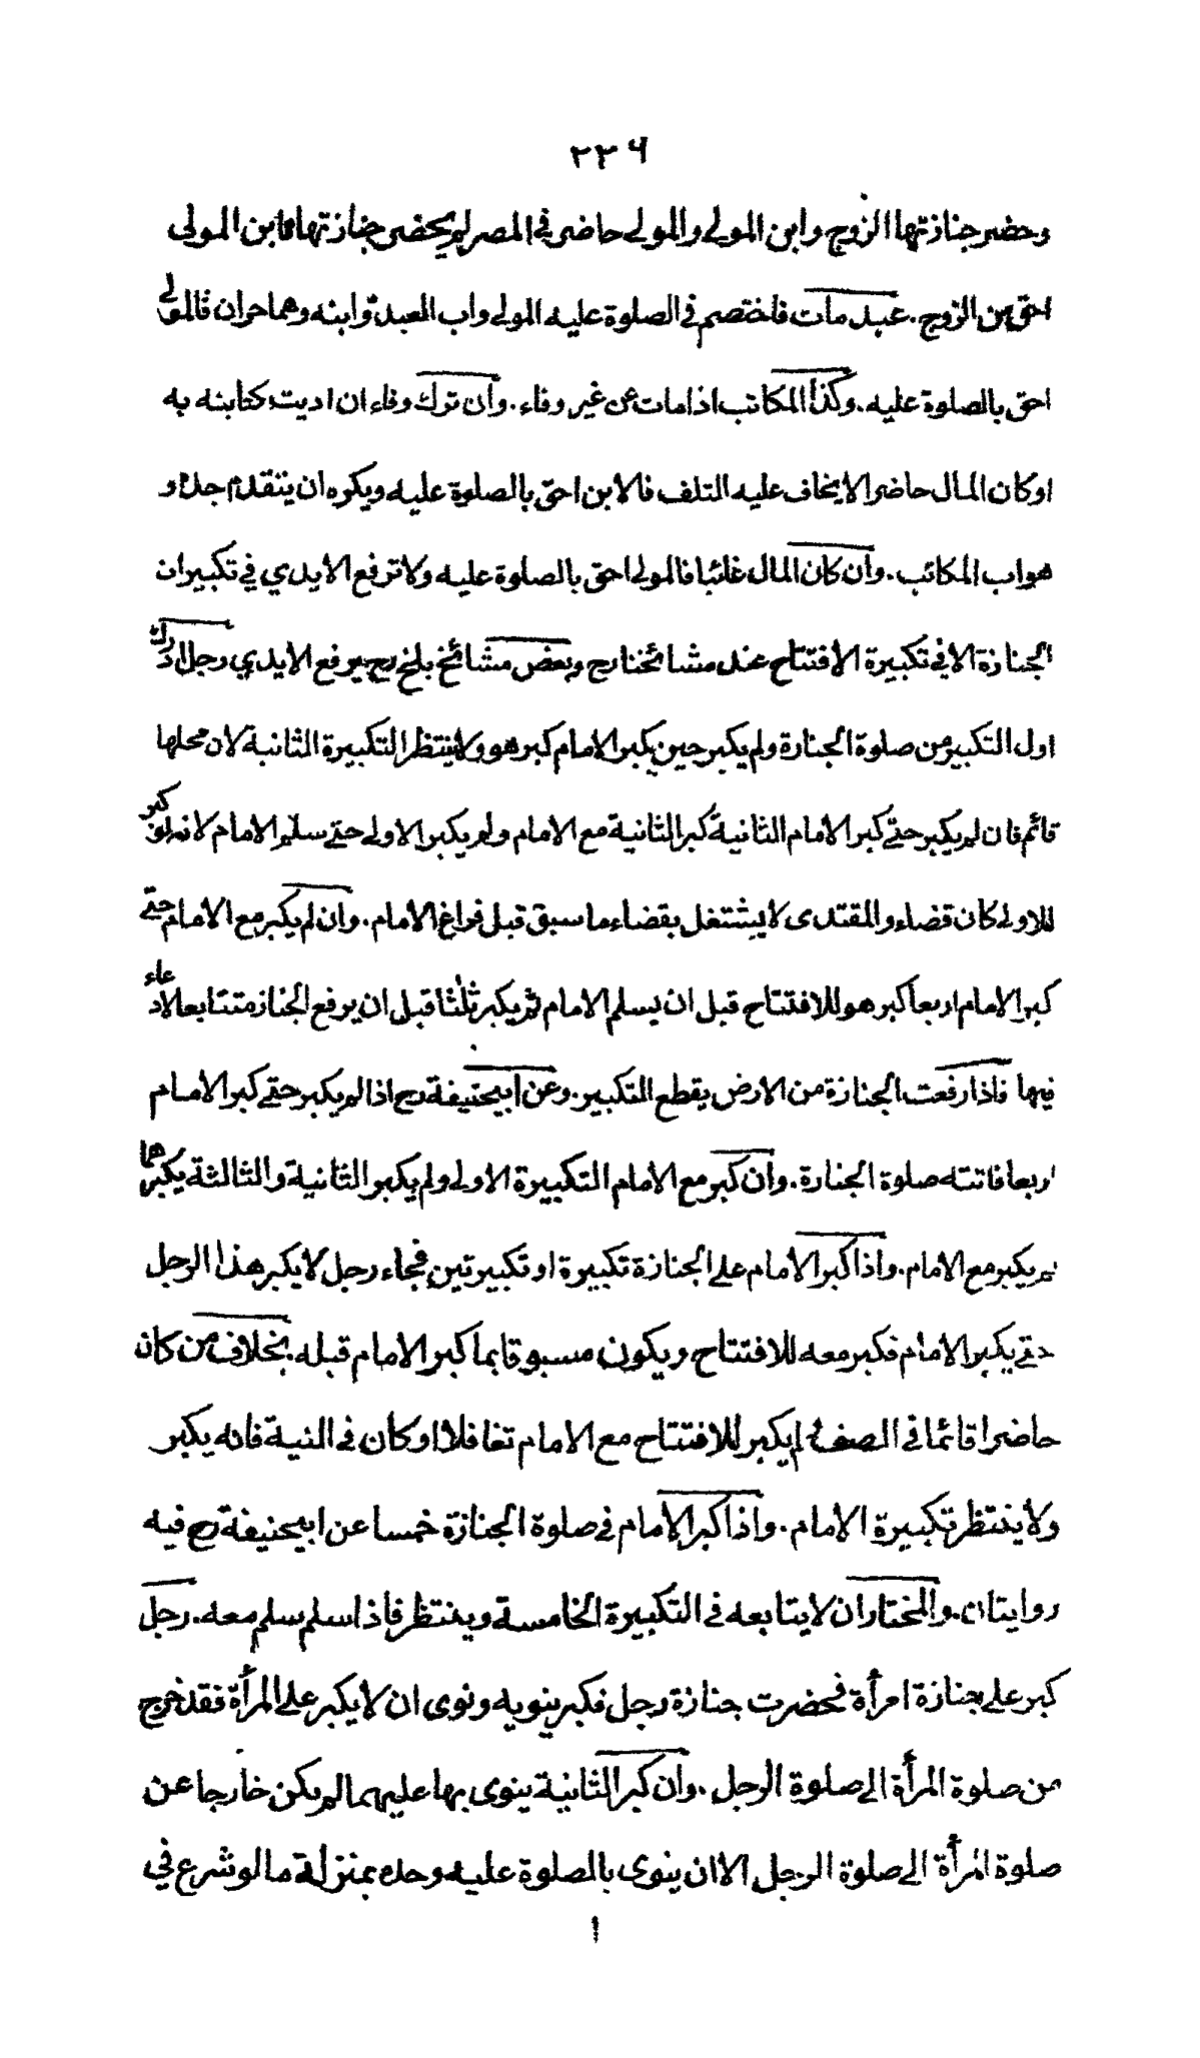 ٢٣٦
وحضر جنازتها الزوج وابن المولى والمولى حاضر في المصر لم يحضر جنازتها فابن المولى
احق من الزوج. عبد مات فاختصم في الصلوة عليه المولى واب العبد وابنه وهما حران فالمولى
احق بالصلوة عليه. وكذا المكاتب اذا مات عن غير وفاء. وان ترك وفاء ان اديت كتابته به
او كان المال حاضرا لا يخاف عليه التلف فالابن احق بالصلوة عليه ويكره ان يتقدم جده و
هو اب المكاتب. وان كان المال غائبا فالمولى احق بالصلوة عليه ولا ترفع الايدي في تكبيران
الجنازة الا في تكبيرة الافتتاح عند مشائخنا رح وبعض مشائخ بلخ رح يرفع الايدي رجل ادرك
اول التكبير من صلوة الجنازة ولم يكبر حين يكبر الامام كبر هو ولا ينتظر التكبيرة الثانية لان محلها
قائم فان لم يكبر حتى كبر الامام الثانية كبر الثانية مع الامام ولم يكبر الاولى حتى سلم الامام لانه لو كبر
للاولى كان قضاء والمقتدى لا يشتغل بقضاء ما سبق قبل فراغ الامام. وان لم يكبر مع الامام حتى
كبر الامام اربعا كبر هو للافتتاح قبل ان يسلم الامام ثم يكبر ثلثا قبل ان يرفع الجنازة متتابعا لا دعاء
فيها فاذا رفعت الجنازة من الارض يقطع التكبير. وعن ابيحنيفة رح اذا لم يكبر حتى كبر الامام
اربعا فاتته صلوة الجنازة. وان كبر مع الامام التكبيرة الاولى ولم يكبر الثانية والثالثة يكبرهما
ثم يكبر مع الامام. واذا كبر الامام على الجنازة تكبيرة او تكبيرتين فجاء رجل لا يكبر هذا الرجل
حتى يكبر الامام فكبر معه للافتتاح ويكون مسبوقا بما كبر الامام قبله. بخلاف من كان
حاضرا قائما في الصف لم يكبر للافتتاح مع الامام تغافلا او كان في النية فانه يكبر
ولا ينتظر تكبيرة الامام. واذا كبر الامام في صلوة الجنازة خمسا عن ابيحنيفة رح فيه
روايتان. والمختار ان لا يتابعه في التكبيرة الخامسة وينتظر فاذا سلم سلم معه. رجل
كبر على جنازة امرأة فحضرت جنازة رجل فكبر ينويه ونوى ان لا يكبر على المرأة فقد خرج
من صلوة المرأة الى صلوة الرجل. وان كبر الثانية ينوى بها عليهما لم يكن خارجا عن
صلوة المرأة الى صلوة الرجل الا ان ينوى بالصلوة عليه وحده بمنزلة ما لو شرع في